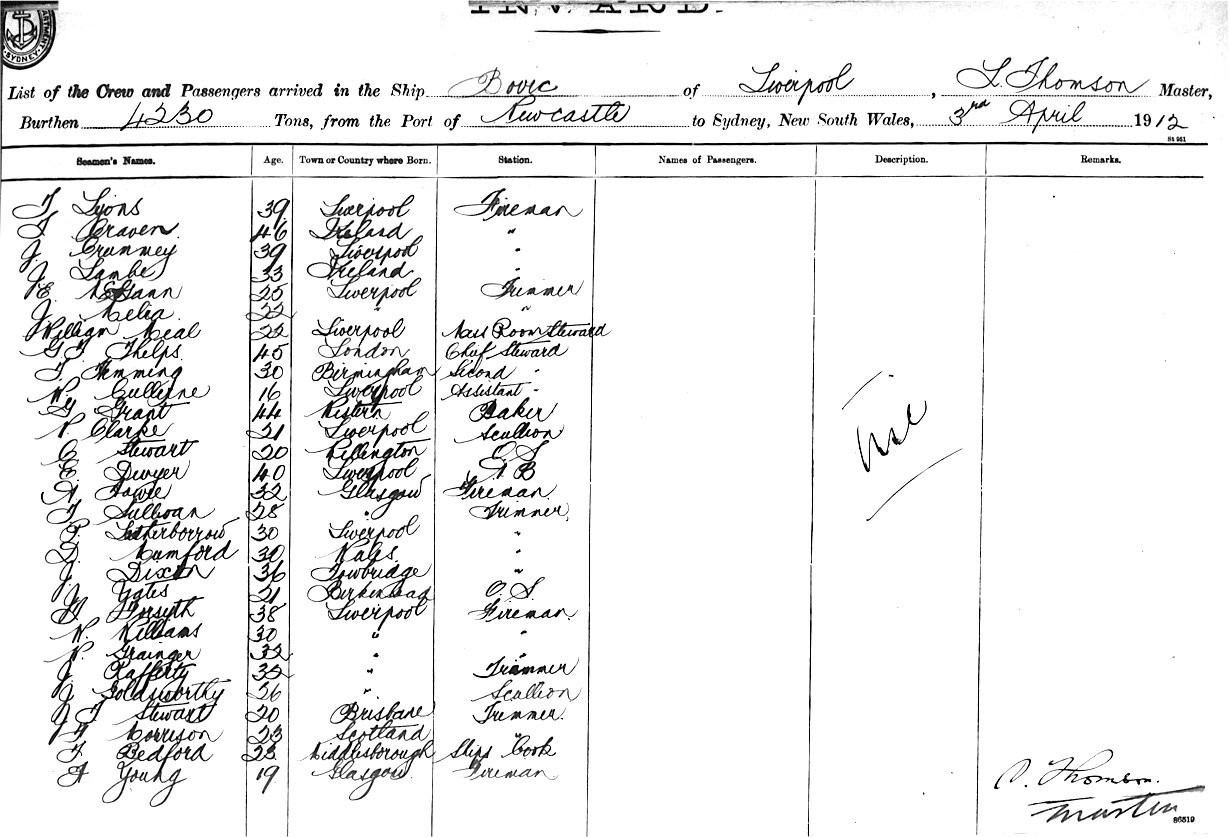 INWARD.
SYDNEY
List of the Crew and Passengers arrived in the Ship Bovic of Liverpool, L. Thomson Master,
Burthen 4230 Tons, from the Port of Newcastle to Sydney, New South Wales, 3rd April 1912
Seamen's Names. Age. Town or Country where Born. Station. Names of Passengers. Description. Remarks.
T Lyons 39 Liverpool Fireman
Craven 46 Ireland "
J. Crummey 39 Liverpool "
J. Lambe 33 Ireland "
E. McGann 25 Liverpool Trimmer
J. Melia 22 " "
William Neal 22 Liverpool Mess Room Steward
G T Phelps 45 London Chief Steward
T. Flemming 30 Birmingham Second "
W. Cullerne 16 Liverpool Assistant "
Grant 44 Baker
Clarke 21 Liverpool Scullion
C Stewart 20 O S
E. Dwyer 40 Liverpool A B
32 Glasgow Fireman
T Sullivan 28 " Trimmer
F. Leatherborrow 30 Liverpool "
D. Mumford 30 Wales "
J. Dixon 36 Trowbridge "
J Yates 21 Birkenhead O. S.
Forsyth 38 Liverpool Fireman
W. Williams 30 " "
Grainger 32 " "
J Rafferty 35 " Trimmer
J Goldsworthy 26 " Scullion
J T Stewart 20 Brisbane Trimmer.
Morrison 23 Scotland "
T. Bedford 23 Middlesborough Ships Cook
A Young 19 Glasgow Fireman
Nil
Thomson.
Master
86519